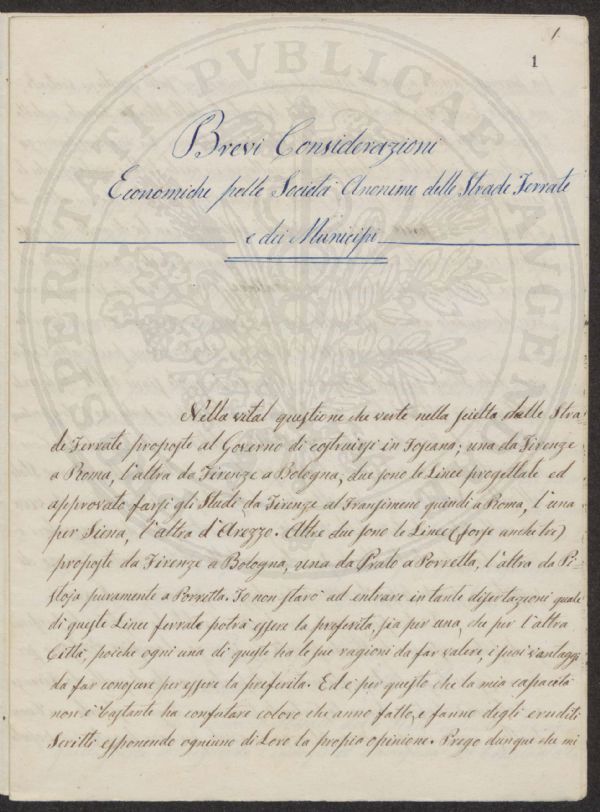 1
1
Brevi Considerazioni
Economiche pelle Società Anonime delle Strade Ferrate
e dei Municipi
Nella vital questione che verte nella scielta delle Stra-
de Ferrate proposte al Governo di costruirsi in Toscana; una da Firenze
a Roma, l'altra da Firenze a Bologna, due sono le Linee progettate ed
approvato farsi gli Studi da Firenze al Transimeno quindi a Roma, l'una
per Siena, l'altra d'Arezzo. Altre due sono le Linee (forse anche tre)
proposte da Firenze a Bologna, una da Prato a Porretta, l'altra da Pi-
stoja puramente a Porretta. Io non starò ad entrare in tante disertazioni quale
di queste Linee ferrate potrà essere la preferita, sia per una, che per l'altra
Città, poiche ogni una di queste ha le sue ragioni da far valere, i suoi vantaggi
da far conoscere per essere la preferita. Ed è per questo che la mia capacità
non è bastante ha confutare coloro che anno fatto, e fanno degli eruditi
Scritti esponendo ogniuno di Loro la propia opinione. Prego dunque che mi
SPERITATI PVBLICAE AVGEN